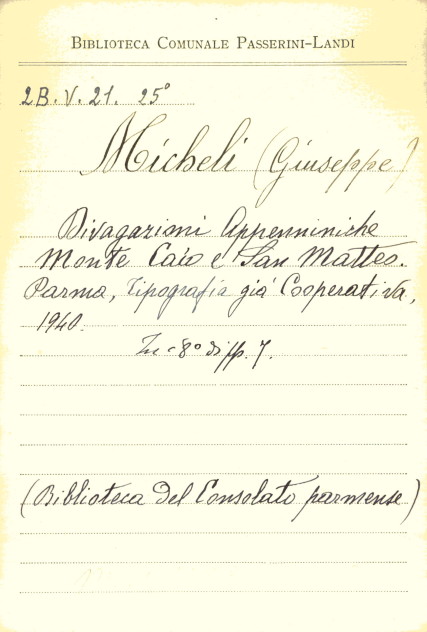 BIBLIOTECA COMUNALE PASSERINI-LANDI
2B. V. 21. 25°
Micheli (Giuseppe)
Divagazioni Appenniniche
Monte Caio e San Matteo.
Parma, Tipografia già Cooperativa,
1940.
In-8° di pp. 7.
(Biblioteca del Consolato parmense)